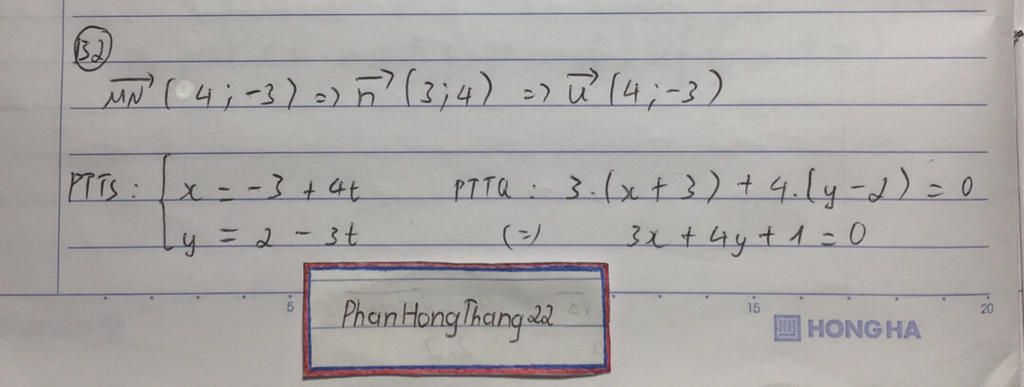 32
MN→ ( 4 ; -3 ) => n→ ( 3 ; 4 ) => u→ ( 4 ; -3 )
PTTS : { x = -3 + 4t PTTQ : 3.(x + 3) + 4.(y - 2) = 0
y = 2 - 3t (=) 3x + 4y + 1 = 0
PhanHongThang22
5 15 20
HONG HA